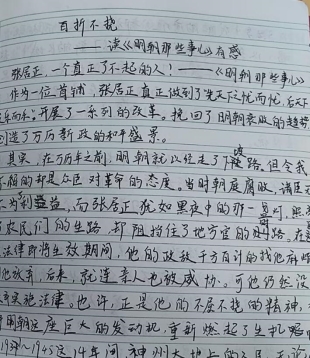 百折不挠
——读《明朝那些事儿》有感
张居正,一个真正了不起的人!——《明朝那些事儿》
作为一位首辅,张居正真正做到了先天下之忧而忧,后天下
乐而乐,开展了一系列的改革。挽回了明朝衰败的趋势
造了万历新政的和平盛景。
其实,在万历年之前,明朝就以经走了下坡路。但令我
不相的却是众臣对革命的态度。当时朝庭腐败,诸臣
为利益,而张居正犹如黑夜中的那一
农民们的生路,却阻挡住了地方官的路。在
法律即将生效期间,他的政敌千方百计的找他麻
他放弃,后来,就连亲人也被威胁。可他仍然没
实施法律。也许,正是他的不屈不挠的精神,
明朝这座巨大的发动机,重新燃起了生机
~1945这14年间,神州大地上的